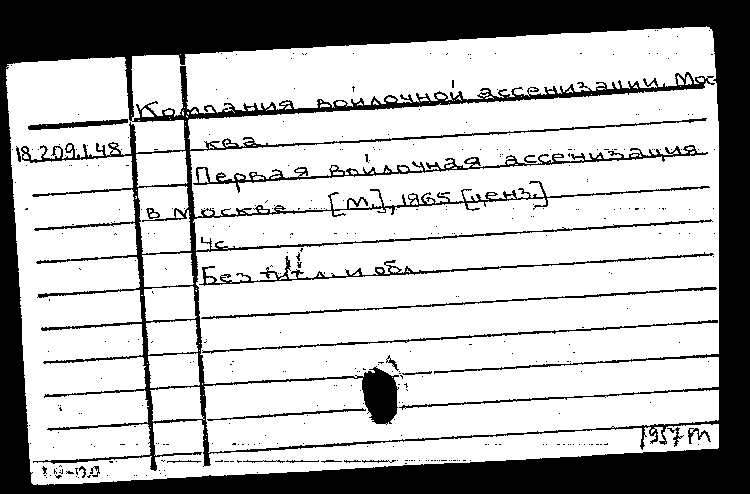 Компания войлочной ассенизации. Мос
18.209.1.48 ква.
Первая войлочная ассенизация
в Москве. [М.], 1865 [ценз.]
4с.
Без тит. л. и обл.
1957 m